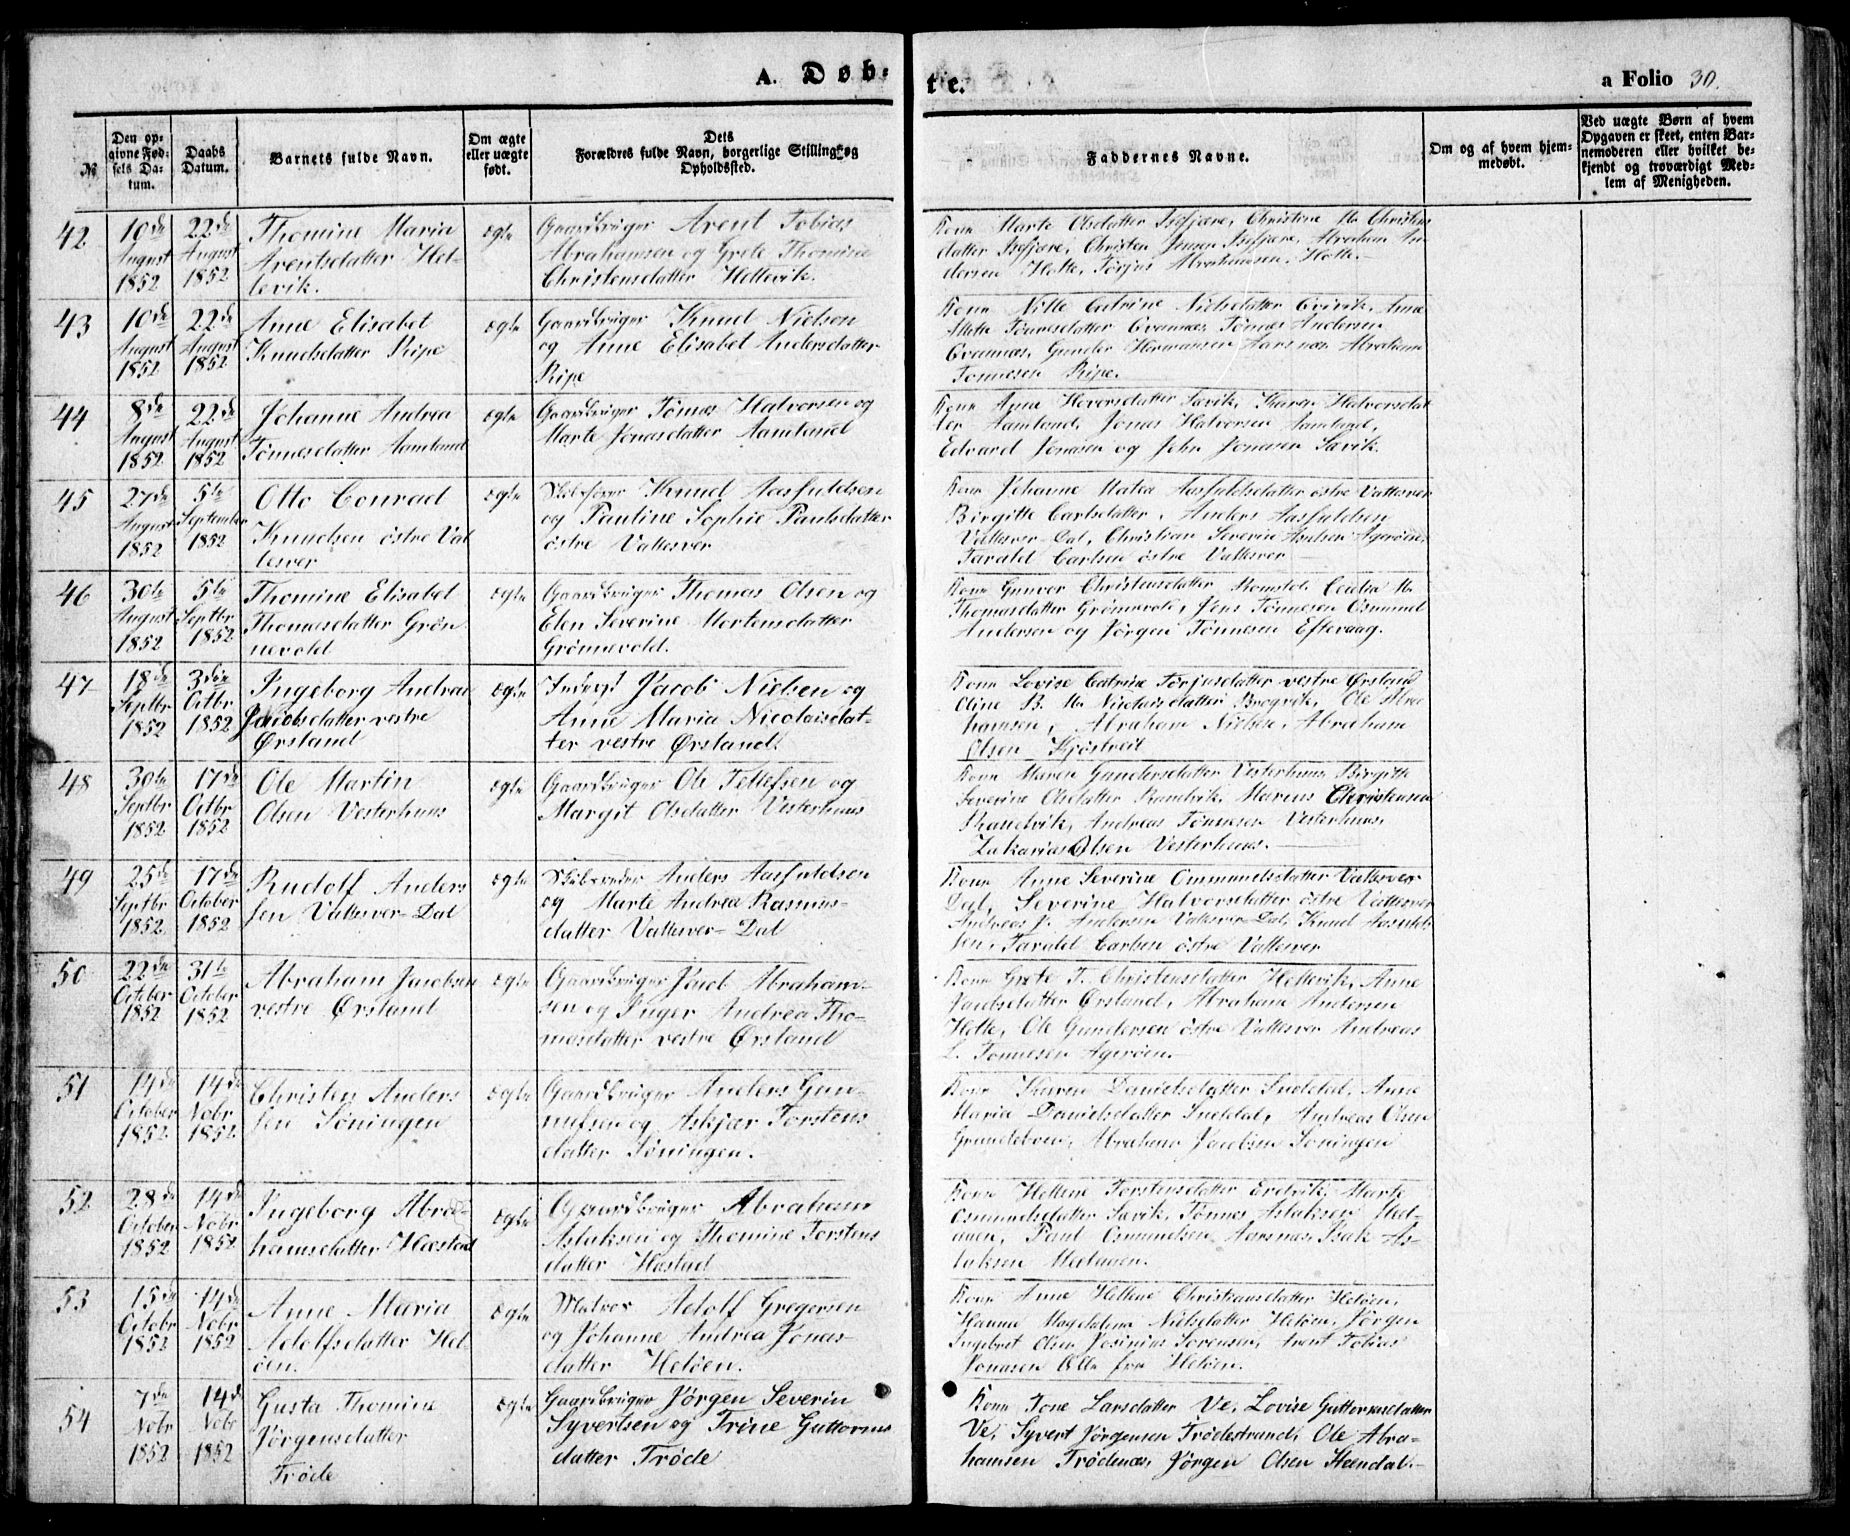 A. Døb-
te.
a Folio 30.
№
Den op-
givne Fød-
sels Da-
tum.
Daabs
Datum.
Barnets fulde Navn.
Om ægte
eller uægte
født.
Dets
Forældres fulde Navn, borgerlige Stilling og
Opholdssted.
Faddernes Navne.
Om og af hvem hjem-
medøbt.
Ved uægte Børn af hvem
Opgaven er skeet, enten Bar-
nemoderen eller hvilket be-
kjendt og troværdigt Med-
lem af Menigheden.
42
10de
August
1852
22de
August
1852
Thomine Maria
Arentsdatter Hel-
levik.
ægte
Gaardbruger Arent Tobias
Abrahamsen og Grete Thomine
Christensdatter Hellevik.
Kone Marte Olsdatter Isefjære, Christine M. Christens
datter Isefjære, Christen Jensen Isefjære, Abraham An-
dersen Holte, Torjus Abrahamsen Holte.
43
10de
August
1852
22de
August
1852
Anne Elisabet
Knudsdatter Ripe
ægte
Gaardbruger Knud Nielsen
og Anne Elisabet Andersdatter
Ripe
Kone Nille Catrine Nielsdatter Anne
Mette Tønnesdatter Tønnes Andersen
Gunder Hermansen Aarsnæs, Abraham
Tønnesen Ripe.
44
8de
August
1852
22de
August
1852
Johanne Andrea
Tønnesdatter Aamland
ægte
Gaardbruger Tønnes Halvorsen og
Marte Jonasdatter Aamland
Kone Anne Sævik, Karen Halvorsdat
ter Aamland, Jonas Halvorsen Aamland,
Edvard Jonasen og John Jonasen Sævik.
45
27de
August
1852
5te
September
1852
Otto Conrad
Knudsen østre Val
lesver
ægte
Skibsfører Knud Aasfuldsen
og Pauline Sophie Paulsdatter
østre Vallesver
Kone Johanne Matea Aasfuldsdatter østre Vallesver
Birgitte Carlsdatter, Anders Aasfuldsen
Vallesver-Dal, Christian Severin Agerøen,
Tarald Carlsen østre Vallesver
46
30te
August
1852
5te
Septbr
1852
Thomine Elisabet
Thomasdatter Grøn
nevold
ægte
Gaardbruger Thomas Olsen og
Elen Severine Mortensdatter
Grønnevold.
Kone Gunvor Christensdatter Cecilia M.
Thomasdatter Grønnevold, Jens Tønnesen Osmund
Andersen og Jørgen Tønnesen Eftevaag.
47
18de
Septbr
1852
3die
Octbr
1852
Ingeborg Andrea
Jacobsdatter vestre
Ørsland
ægte
Inderst Jacob Nielsen og
Anne Maria Nicolaisdat-
ter vestre Ørsland.
Kone Lovise Catrine Torjusdatter vestre Ørsland
Oline B. M. Nicolaisdatter Bregvik, Ole Abra
hamsen, Abraham Nielsen, Abraham
Olsen Kjøstveit
48
30te
Septbr
1852
17de
Octbr
1852
Ole Martin
Olsen Vesterhuus
ægte
Gaardbruger Ole Tellefsen og
Margit Olsdatter Vesterhuus
Kone Maren Gundersdatter Vesterhuus Birgitte
Severine Olsdatter Randvik, Marcus Christensen
Randvik, Andreas Tønnesen Vesterhuus,
Zakarias Olsen Vesterhuus.
49
25de
Septbr
1852
17de
October
1852
Rudolf Anders
sen Vallesver-Dal
ægte
Skibsreder Anders Aasfuldsen
og Marte Andrea Rasmus-
datter Vallesver-Dal
Kone Anne Severine Ommundsdatter Vallesver
Dal, Severine Halvorsdatter østre Vallesver
Andreas J. Andersen Vallesver-Dal, Knud Aasfuld
sen, Tarald Carlsen østre Vallesver
50
22de
October
1852
31te
October
1852
Abraham Jacobsen
vestre Ørsland
ægte
Gaardbruger Jacob Abraham-
sen og Inger Andrea Tho-
masdatter vestre Ørsland
Kone Grete T. Christensdatter Hellevik, Anne
Jacobsdatter Ørsland, Abraham Andersen
Holte, Ole Gundersen østre Vallesver Andreas
L. Tønnesen Agerøen.
51
14de
October
1852
14de
Nobr
1852
Christen Anders
sen Søningen
ægte
Gaardbruger Anders Gun-
nufsen og Askjær Torstens
datter Søningen.
Kone Karen Danielsdatter Anne
Maria Danielsdatter Andreas Olsen
Abraham Jacobsen Søningen
52
28de
October
1852
14de
Nobr
1852
Ingeborg Abra-
hamsdatter Hæstad
ægte
Gaardbruger Abraham
Aslaksen og Thomine Torstens
datter Hæstad
Kone Hellene Torstensdatter Eidvik, Marte
Osmundsdatter Sævik, Tønnes Aslaksen Med-
auen, Paul Osmundsen Aarsnæs, Isak As-
laksen Medauen.
53
15de
Octobr
1852
14de
Nobr
1852
Anne Maria
Adolfsdatter Hel-
øen.
ægte
Matros Adolf Gregersen
og Johanne Andrea Jonas
datter Heløen.
Kone Anne Hellene Christensdatter Heløen,
Hanne Magdalena Nielsdatter Heløen, Jørgen
Ingebret Olsen Josinius Sørensen, Arent Tobias
Jonasen Alle fra Heløen.
54
7de
Nobr
1852
14de
Nobr
1852
Gusta Thomine
Jørgensdatter
Trøde
ægte
Gaardbruger Jørgen Severin
Syvertsen og Trine Guttorms
datter Trøde
Kone Tone Larsdatter Ve, Lovise Guttormsdatter
Ve, Syvert Jørgensen Trødestrand, Ole Abra-
hamsen Trødenæs, Jørgen Olsen Steendal.